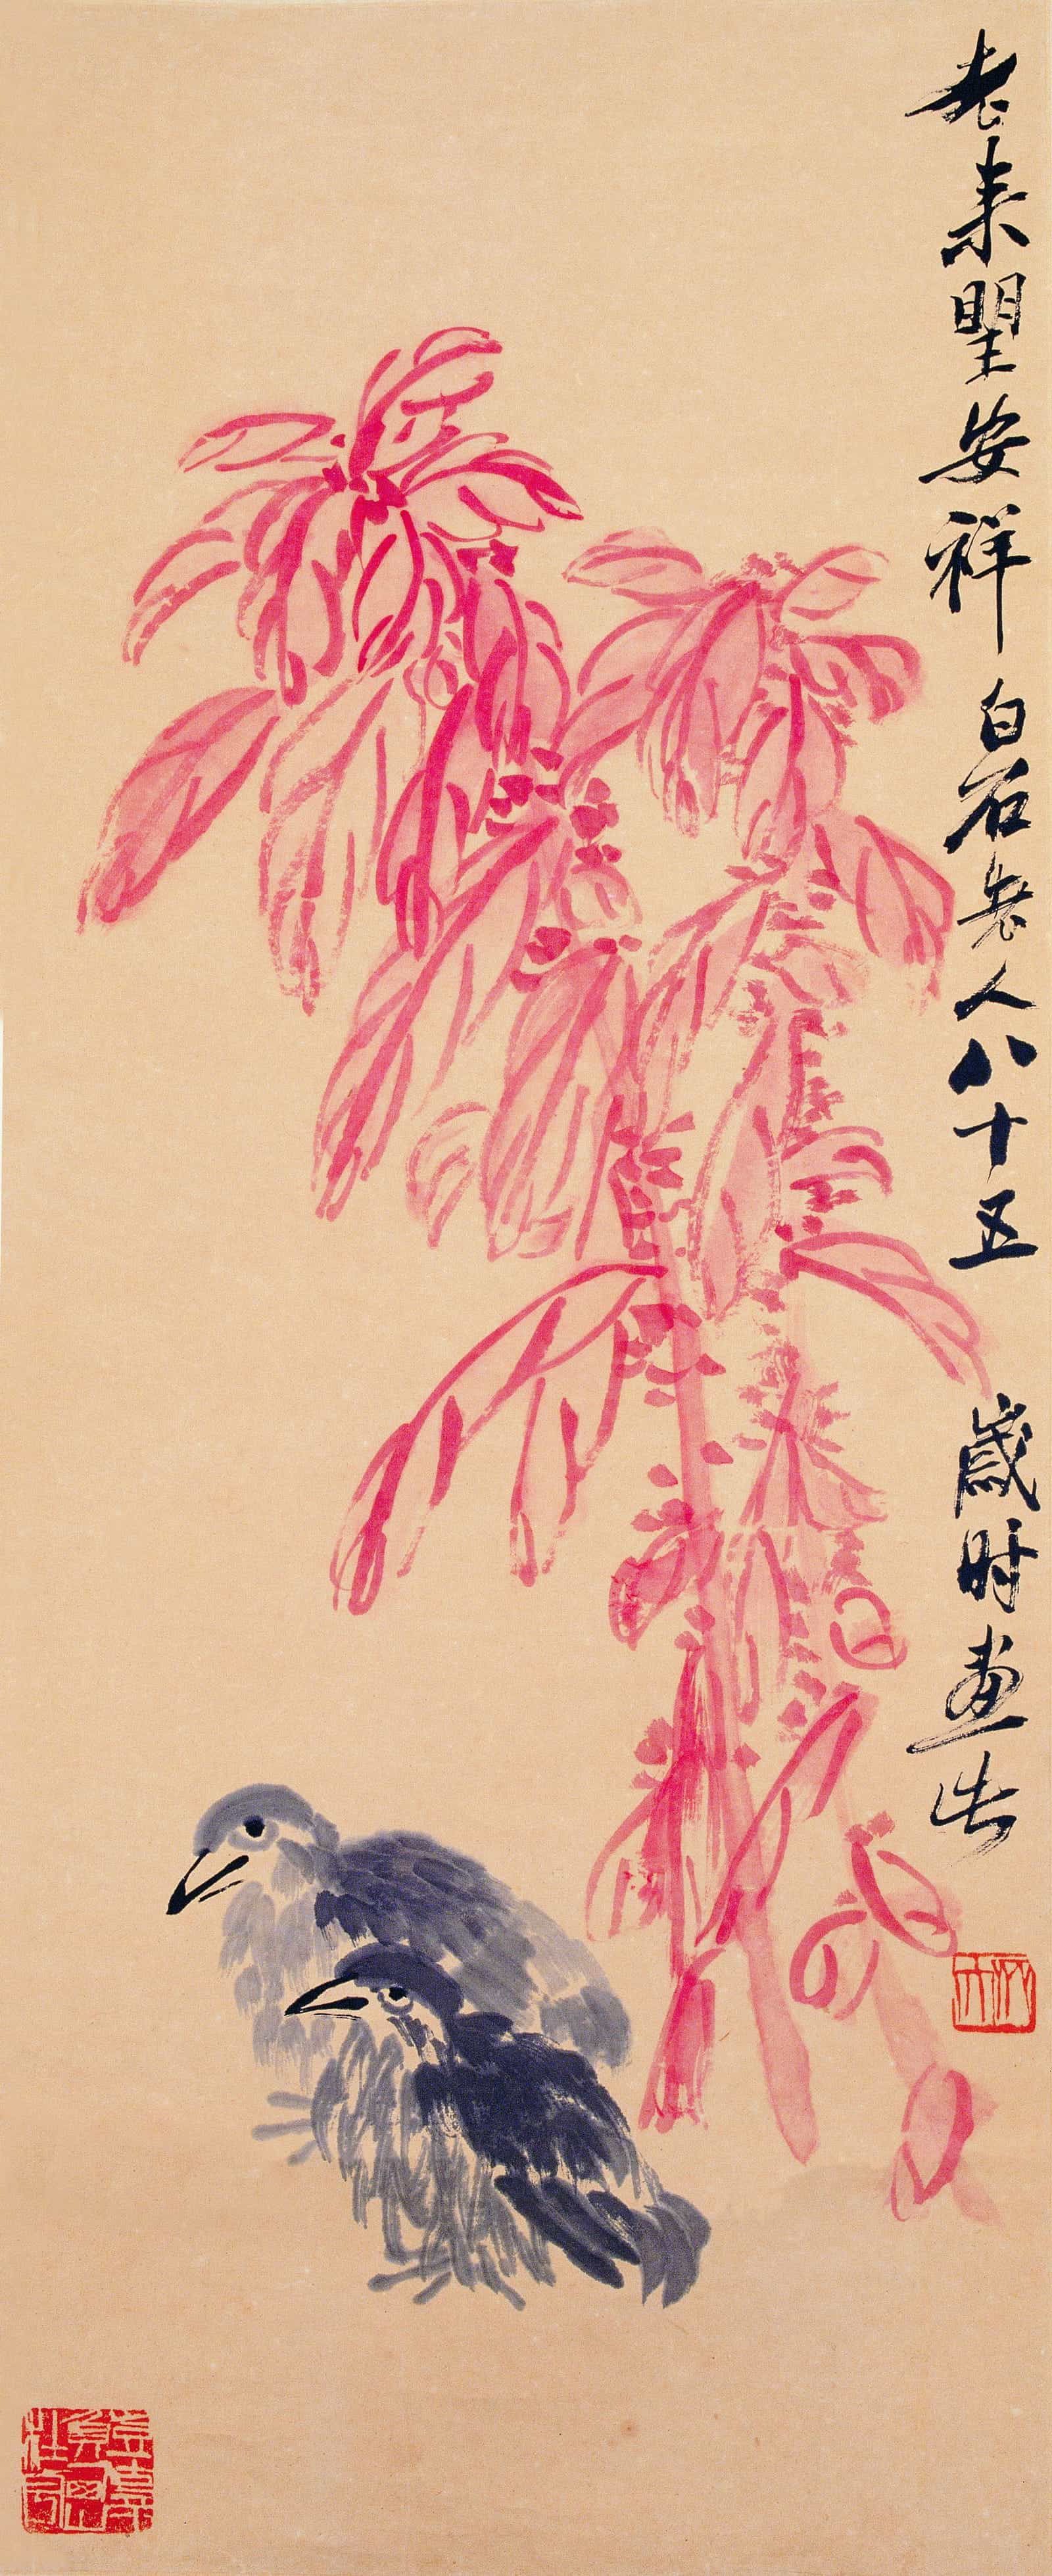 老来朢安祥 白石老人八十五 歲时畫